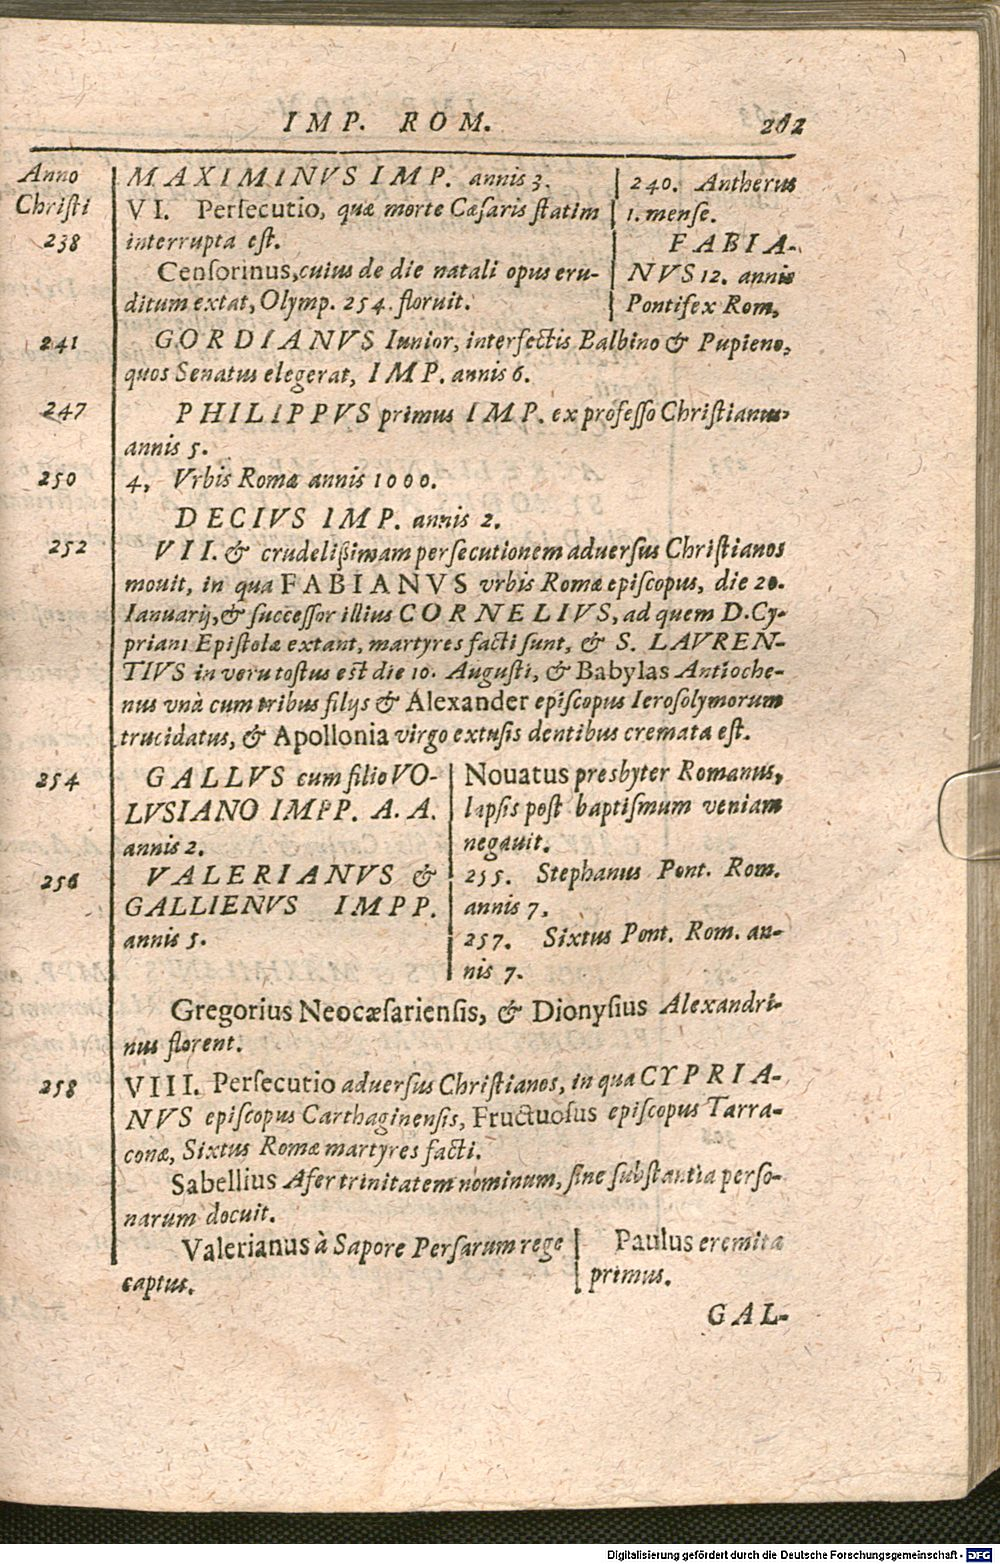 IMP. ROM. 262
Anno
Christi
MAXIMINVS IMP. annis 3.
VI. Persecutio, quæ morte Cæsaris statim
238 interrupta est.
Censorinus, cuius de die natali opus eru-
ditum extat, Olymp. 254. floruit.
240. Antherus
1. mense.
FABIA-
NVS 12. annis
Pontifex Rom,
241 GORDIANVS Iunior, interfectis Balbino & Pupieno,
quos Senatus elegerat, IMP. annis 6.
247 PHILIPPVS primus IMP. ex professo Christianus,
annis 5.
250 4, Vrbis Romæ annis 1000.
DECIVS IMP. annis 2.
252 VII. & crudelißimam persecutionem aduersus Christianos
mouit, in qua FABIANVS vrbis Romæ episcopus, die 20.
Ianuarij, & successor illius CORNELIVS, ad quem D. Cy-
priani Epistolæ extant, martyres facti sunt, & S. LAVREN-
TIVS in veru tostus est die 10. Augusti, & Babylas Antioche-
nus vnà cum tribus filijs & Alexander episcopus Ierosolymorum
trucidatus, & Apollonia virgo extusis dentibus cremata est.
254 GALLVS cum filio VO-
LVSIANO IMPP. A. A.
annis 2.
256 VALERIANVS &
GALLIENVS IMPP.
annis 5.
Nouatus presbyter Romanus,
lapsis post baptismum veniam
negauit.
255. Stephanus Pont. Rom.
annis 7,
257. Sixtus Pont. Rom. an-
nis 7.
Gregorius Neocæsariensis, & Dionysius Alexandri-
nus florent.
258 VIII. Persecutio aduersus Christianos, in qua CYPRIA-
NVS episcopus Carthaginensis, Fructuosus episcopus Tarra-
conæ, Sixtus Romæ martyres facti.
Sabellius Afer trinitatem nominum, sine substantia perso-
narum docuit.
Valerianus à Sapore Persarum rege
captus.
Paulus eremita
primus.
GAL-
Digitalisierung gefördert durch die Deutsche Forschungsgemeinschaft - DFG